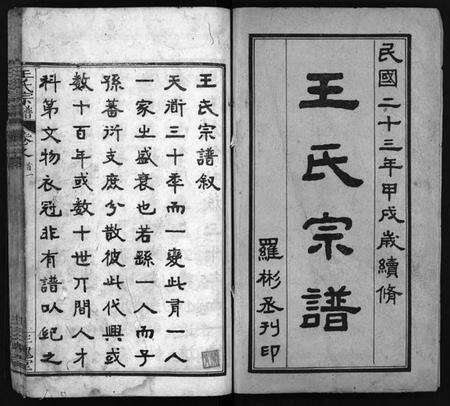 民國二十三年甲戌歲續脩
王氏宗譜
羅彬丞刊印
王氏宗譜叙
天道三十季而一變此言一人
一家之盛衰也若繇一人而子
孫蕃衍支庶分散彼此代興或
數十百年或數十世丌間人才
科第文物衣冠非有譜㠯紀之
王氏宗譜